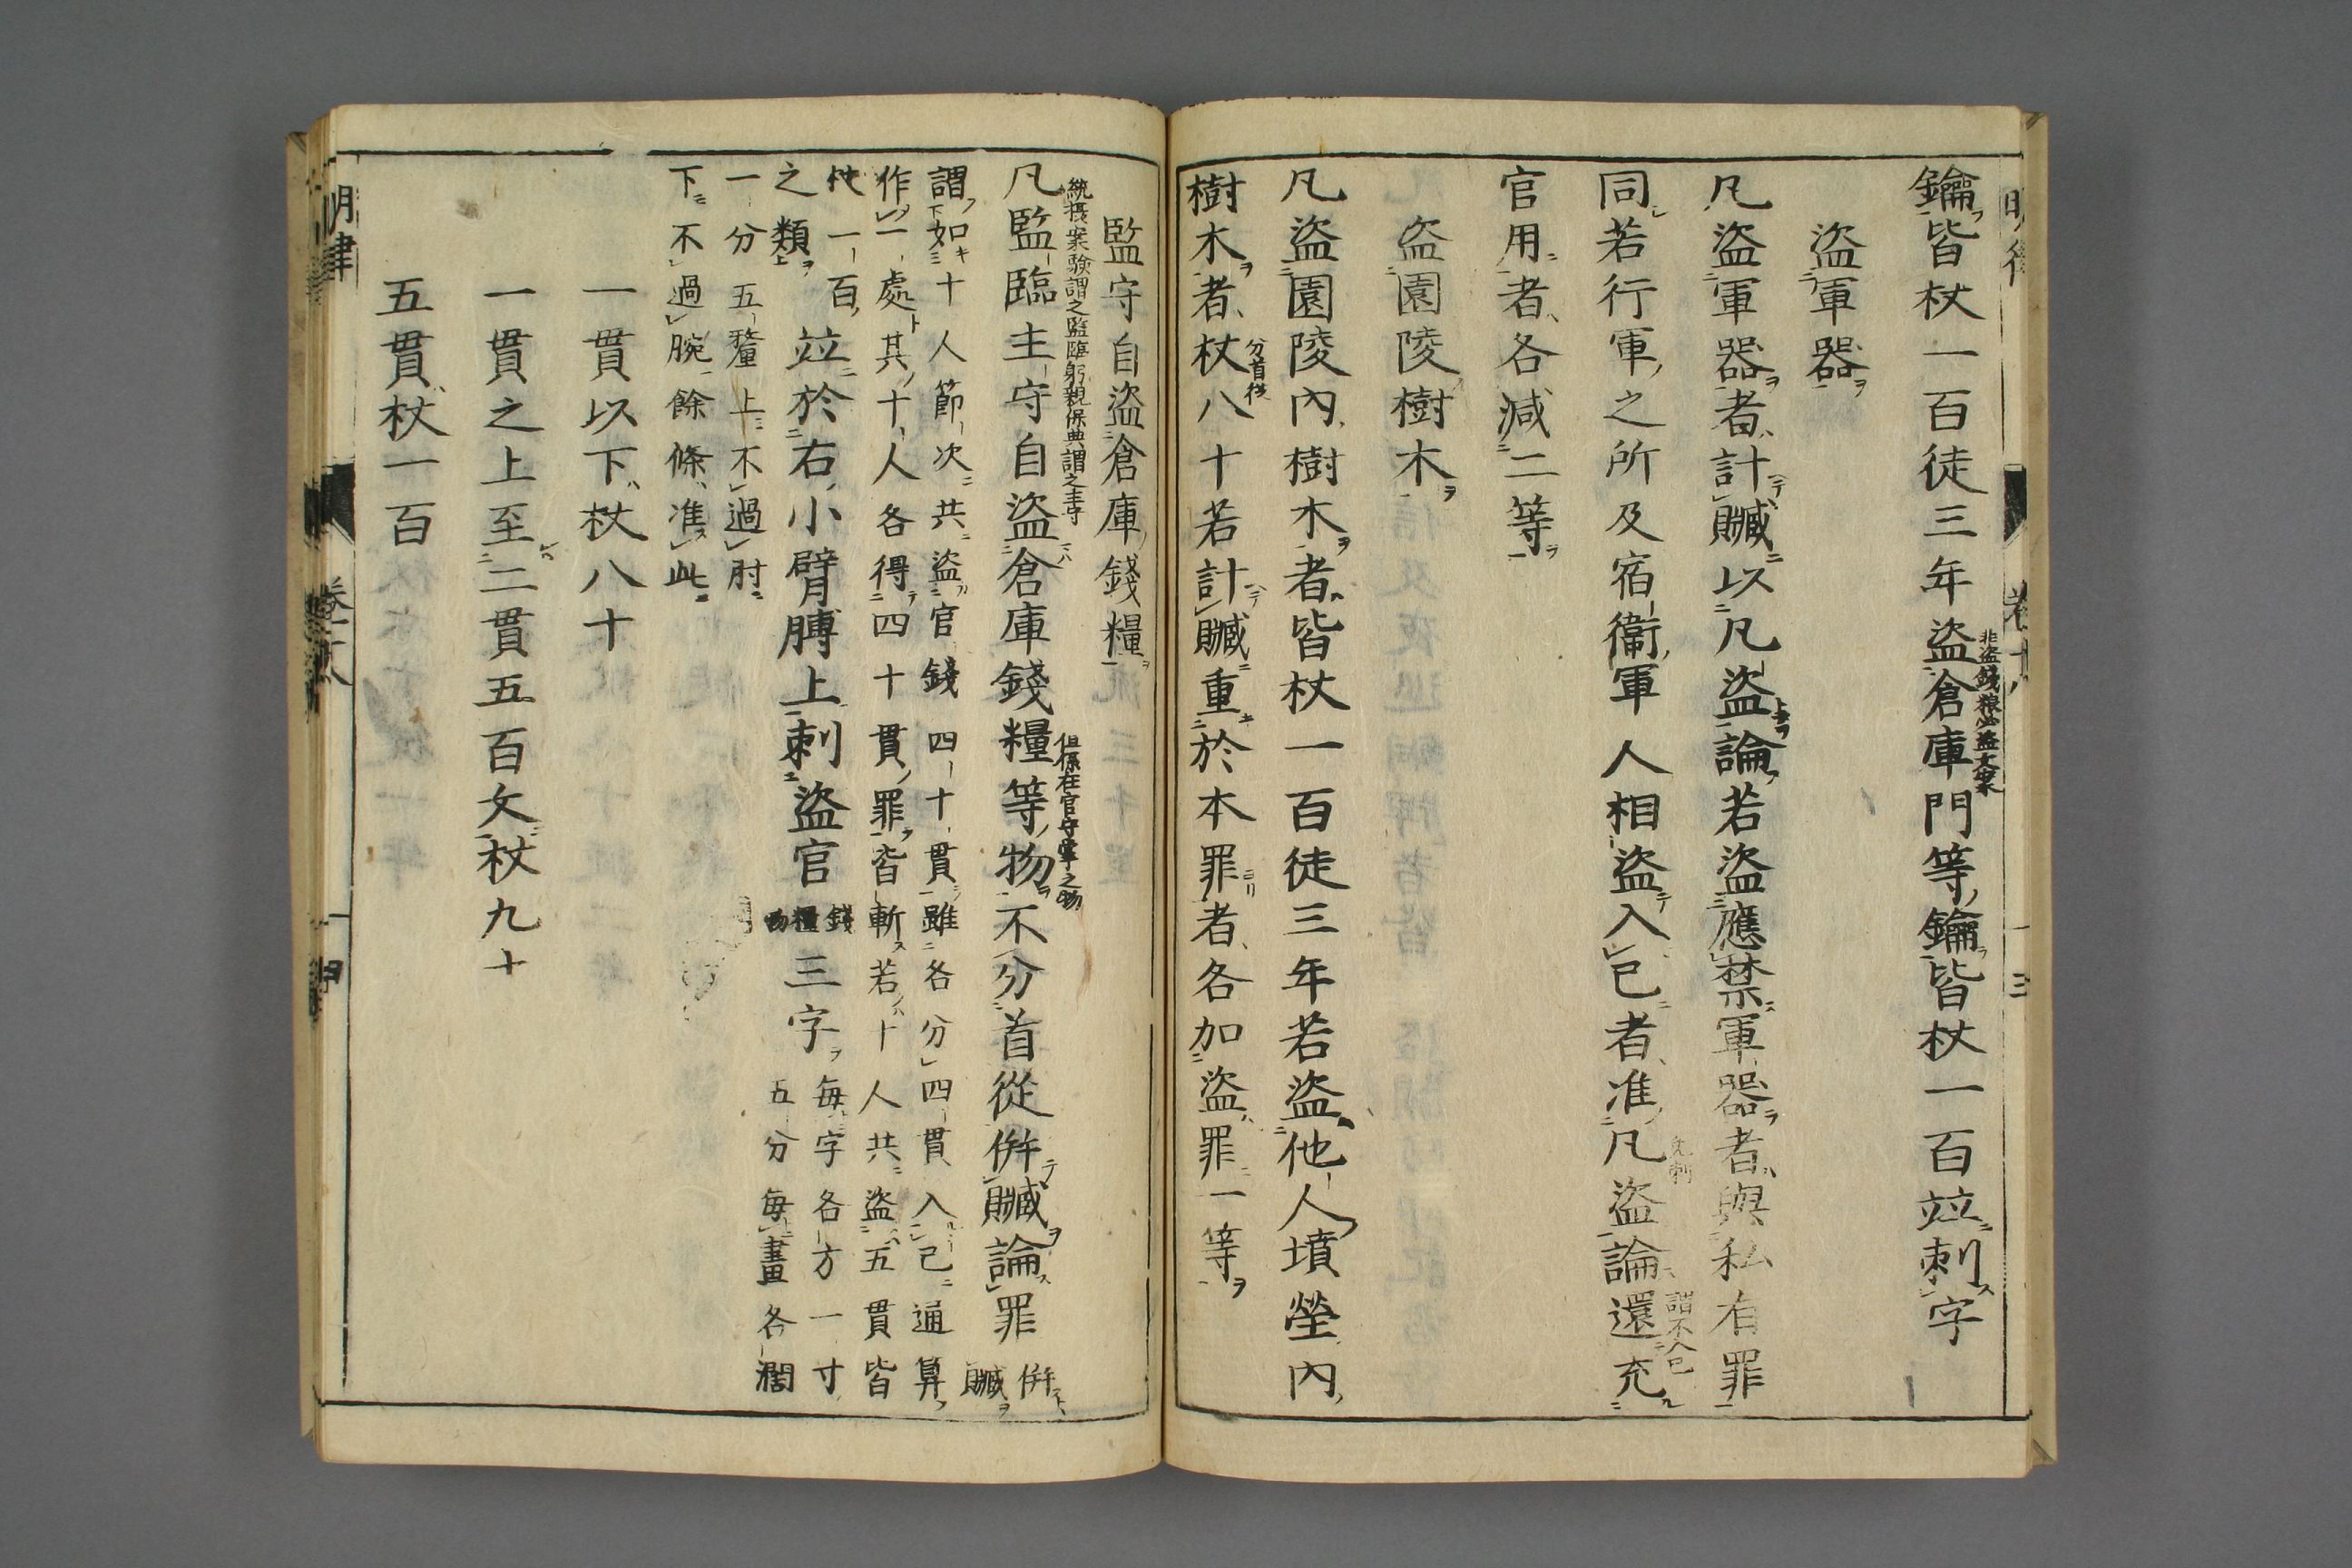 鑰皆杖一百徒三年盜倉庫門等鑰皆杖一百竝刺字
非盜錢粮必盜文案
盜軍器
凡盜軍器者計贓以凡盜論若盜應禁軍器者與私有罪
同若行軍之所及宿衞軍人相盜入己者准凡盜論還充
免刺
謂不入己
官用者各減二等
盜園陵樹木
凡盜園陵內樹木者皆杖一百徒三年若盜他人墳塋內
樹木者杖八十若計贓重於本罪者各加盜罪一等
分首從
監守自盜倉庫錢糧
統攝案驗謂之監臨躬親保典謂之主守
凡監臨主守自盜倉庫錢糧等物不分首從併贓論罪
但係在官守掌之物
併
贓
謂如十人節次共盜官錢四十貫雖各分四貫入己通算
作一處其十人各得四十貫罪皆斬若十人共盜五貫皆
杖一百
之類
竝於右小臂膊上刺盜官
錢
糧
物
三字
每字各方一寸
五分每畫各濶
一分五釐上不過肘
下不過腕餘條准此
一貫以下杖八十
一貫之上至二貫五百文杖九十
五貫杖一百
明律
卷十八